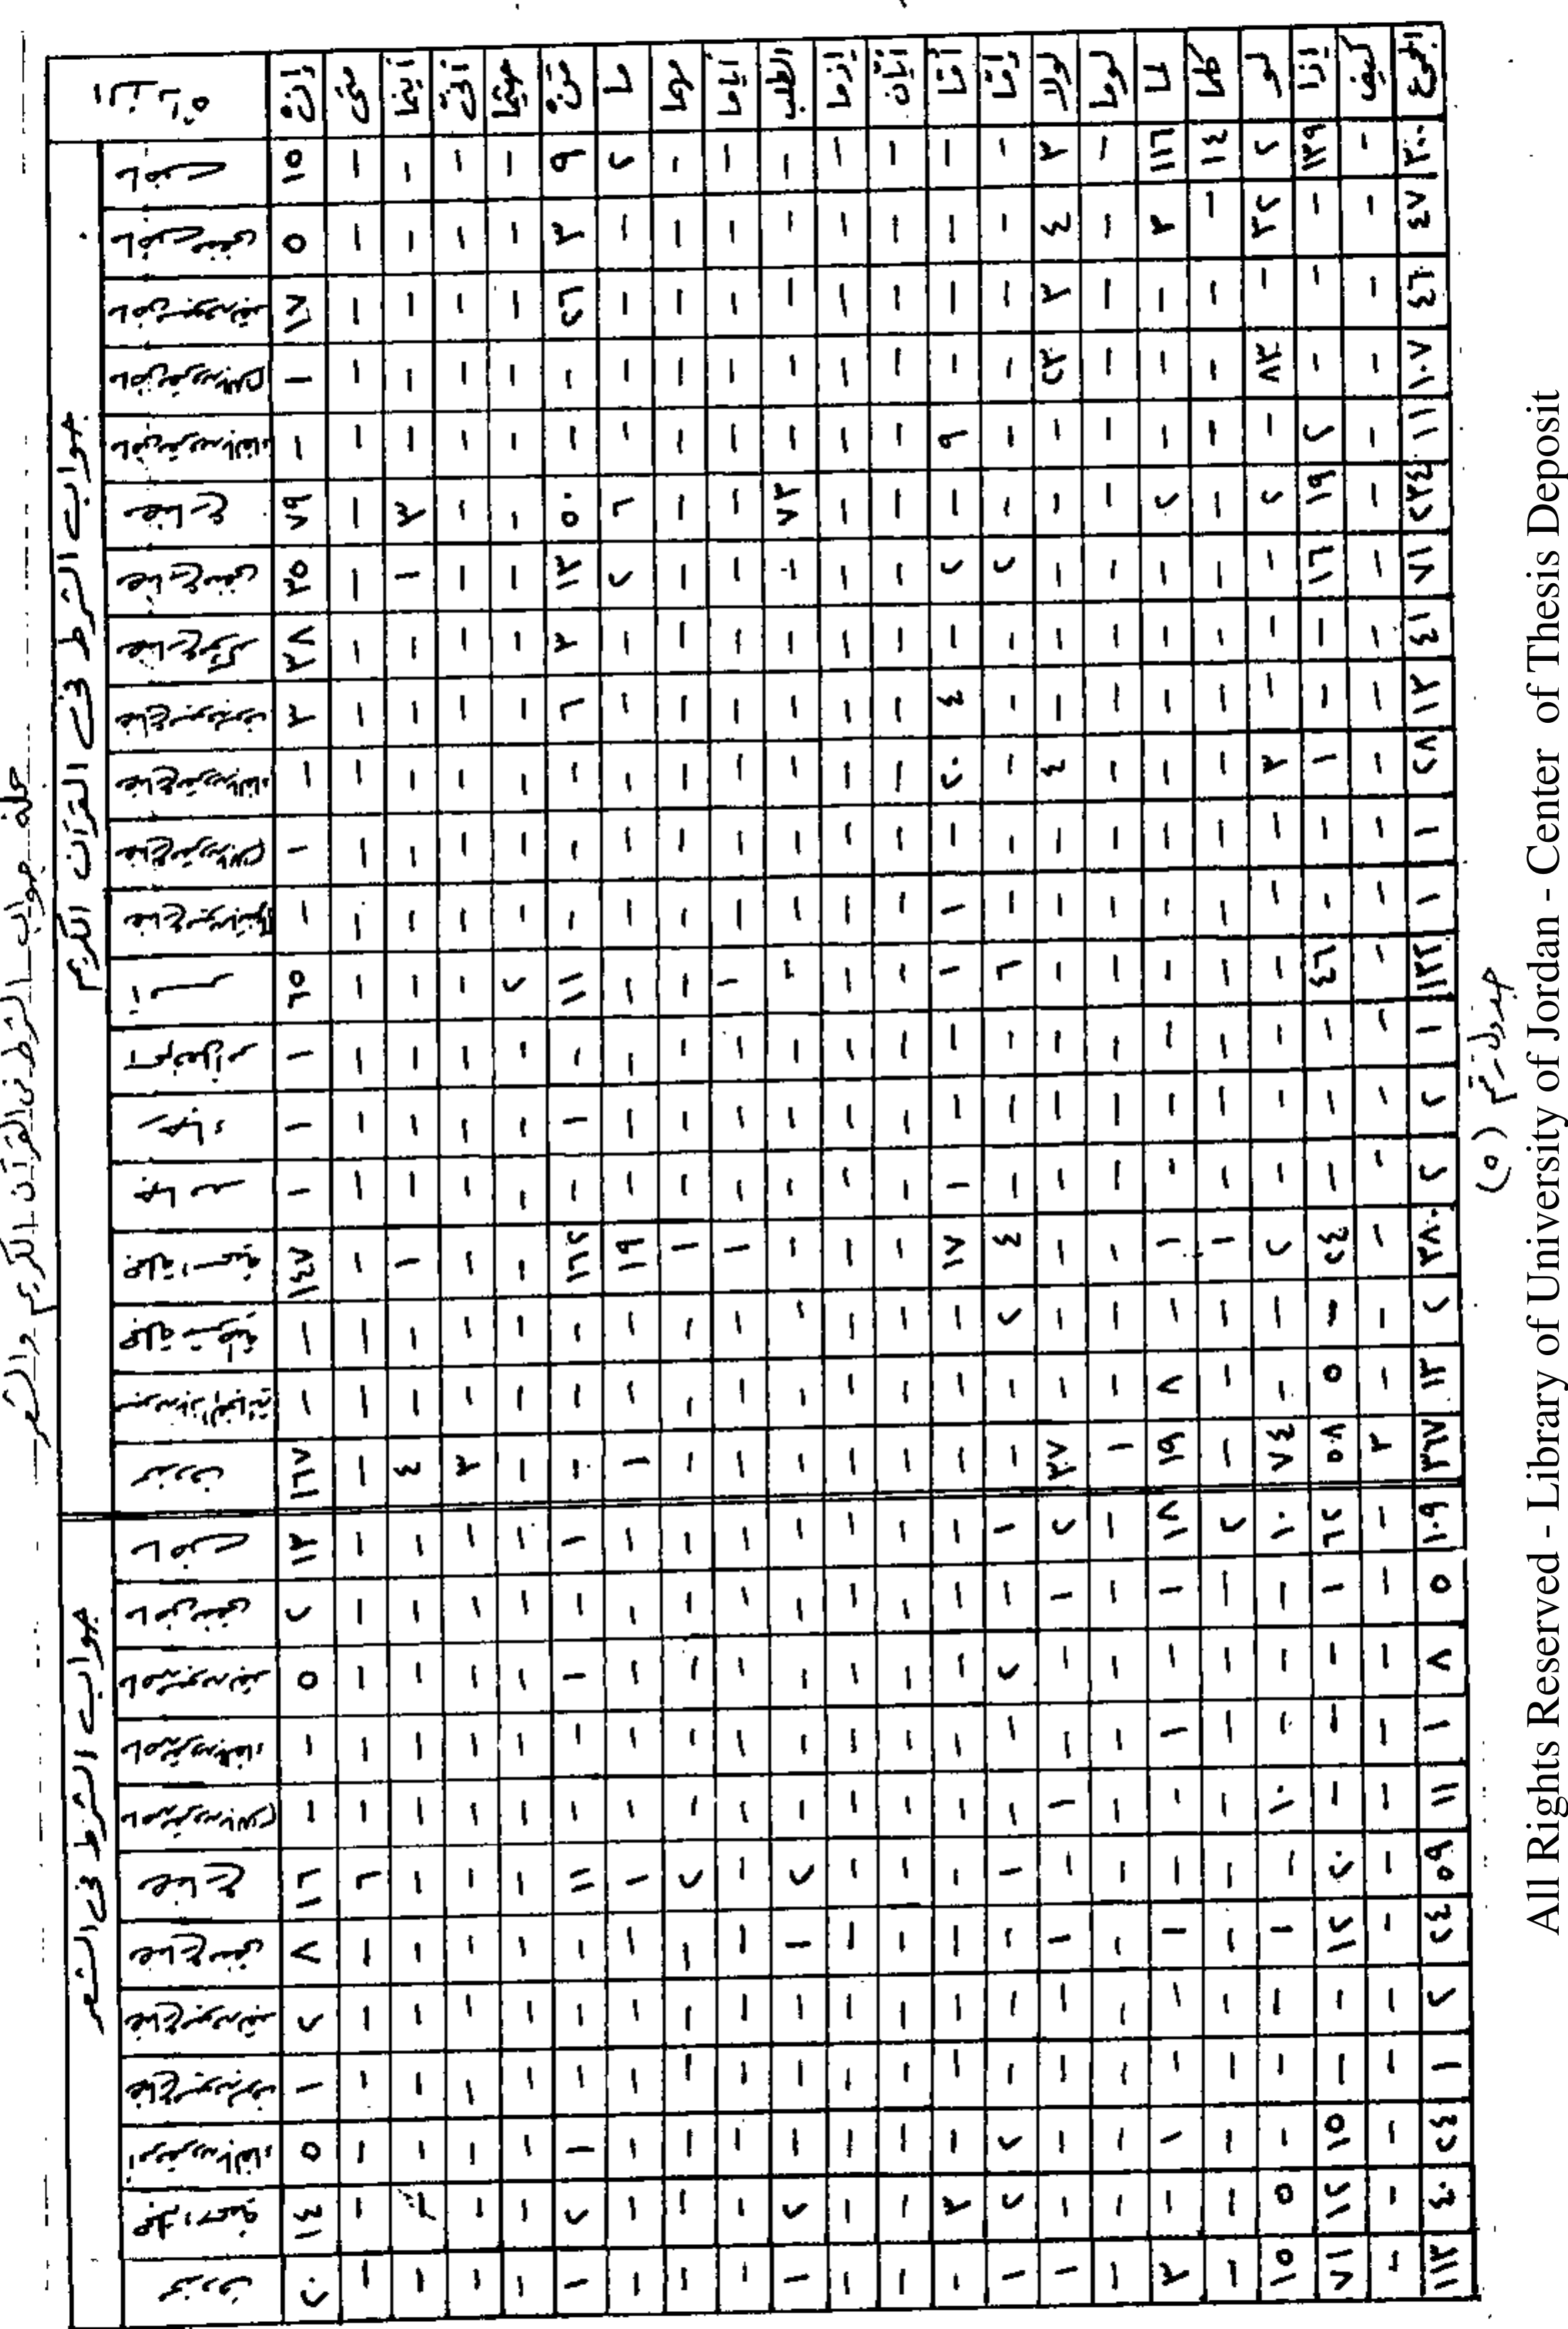 جملة جواب الشرط في القرآن الكريم والشعر
جواب الشرط في القرآن الكريم جواب الشرط في الشعر
الأداة ماضي ماضي منفي ماضي مقرون بقد ماضي مقرون باللام ماضي مقرون بالفاء مضارع مضارع منفي مضارع مؤكد مضارع مقرون بسوف مضارع مقرون بالفاء مضارع مقرون باللام مضارع مقرون بالسين أمر اسم فعل أمر رجاء مصدر جملة اسمية جملة شرطية مقرون بإذا الفجائية محذوف ماضي ماضي منفي ماضي مقرون بقد ماضي مقرون بالفاء ماضي مقرون باللام مضارع مضارع منفي مضارع مقرون بقد مضارع مقرون بسوف أمر مقرون بالفاء جملة اسمية محذوف
إنْ ١٥ ٥ ١٧ ١ - ٧٩ ٣٥ ٣٨ ٣ - ١ - ٦٥ ١ ١ ١ ١٤٧ - - ١٦٧ ١٣ ٢ ٥ - - ١٦ ٨ ٢ ١ ٥ ١٤ ٢٠
متى - - - - - - - - - - - - - - - - - - - - - - - - - ٦ - - - - - -
أينما - - - - - ٣ ١ - - - - - - - - - ١ - - ٤ - - - - - - - - - - - -
أنّى - - - - - - - - - - - - - - - - - - - ٣ - - - - - - - - - - - -
حيثما - - - - - - - - - - - - ٢ - - - - - - - - - - - - - - - - - - -
مَنْ ٩ ٣ ٢٦ - - ٥٠ ١٣ ٣ ٦ - - - ١١ - ١ - ١٦٢ - - - ١ - ١ - - ١١ - - - ١ ٢ ١
ما ٢ - - - - ٦ ٢ - - - - - - - - - ١٩ - - ١ - - - - - ١ - - - - - -
مهما - - - - - - - - - - - - - - - - ١ - - - - - - - - ٢ - - - - - -
أياما - - - - - - - - - - - - ١ - - - ١ - - - - - - - - - - - - - - -
الطلب - - - - - ٧٣ - - - - - - - - - - - - - - - - - - - ٢ ١ - - - ٢ ١
إذما - - - - - - - - - - - - - - - - - - - - - - - - - - - - - - - -
أيّان - - - - - - - - - - - - - - - - - - - - - - - - - - - - - - - -
أمّا - - - - ٩ - ٢ - ٤ ٢٠ - ١ ١ - - ١ ١٧ - - - - - - - - - - - - - ٣ -
إمّا - - - - - - ٢ - - - - - ٦ - - - ٤ ٢ - - ١ - ٢ - - ١ - - - ٢ ٢ ١
لولا ٣ ٤ ٣ ٢٣ - - - - - ٤ - - - - - - - - - ٣٧ ٢ ١ - - ١ - ١ - - - - ١
لوما - - - - - - - - - - - - - - - - - - - ١ - - - - - - - - - - - -
لما ١١٦ ٣ - - - ٢ - - - - - - - - - - ١ - ٨ ١٩ ١٨ ١ - ١ - - ١ - - ١ - ٣
كلما ١٤ - - - - - - - - - - - - - - - ١ - - - ٢ - - - - - - - - - - -
لو ٢ ٣٢ - ٨٣ - ٢ - - - ٣ - - - - - - ٢ - - ٧٤ ١٠ - - - ١٠ - ١ - - - ٥ ١٥
إذا ١٣٩ - - - ٢ ١٩ ١٦ - - ١ - - ٤٦ - - - ٢٤ - ٥ ٥٨ ٦٢ ١ - - - ٢٠ ١٢ - - ١٥ ١٢ ٧١
كيف - - - - - - - - - - - - - - - - - - - ٣ - - - - - - - - - - - -
المجموع ٣٠٠ ٤٧ ٤٦ ١٠٧ ١١ ٢٣٤ ٧١ ٤١ ١٣ ٢٨ ١ ١ ١٣٢ ١ ٢ ٢ ٣٨٠ ٢ ١٣ ٣٦٧ ١٠٩ ٥ ٧ ١ ١١ ٥٩ ٢٤ ٢ ١ ٢٤ ٤٠ ١١٣
جدول رقم (٥)
All Rights Reserved - Library of University of Jordan - Center of Thesis Deposit